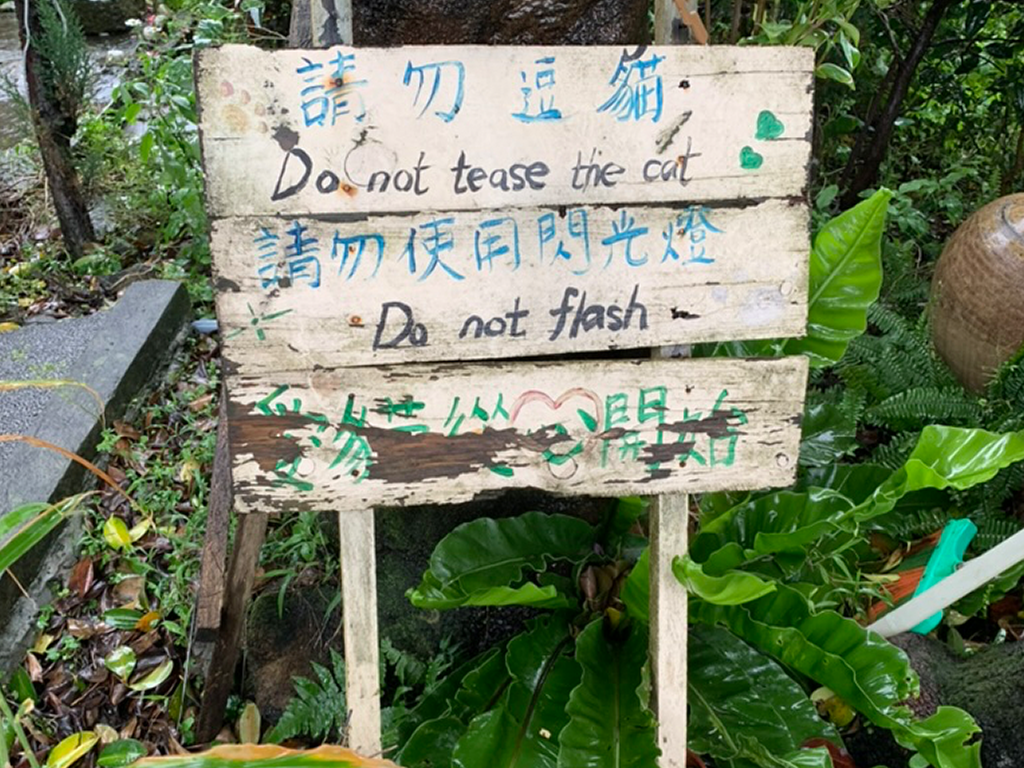 請勿逗貓
Do not tease the cat
請勿使用閃光燈
Do not flash
從心開始